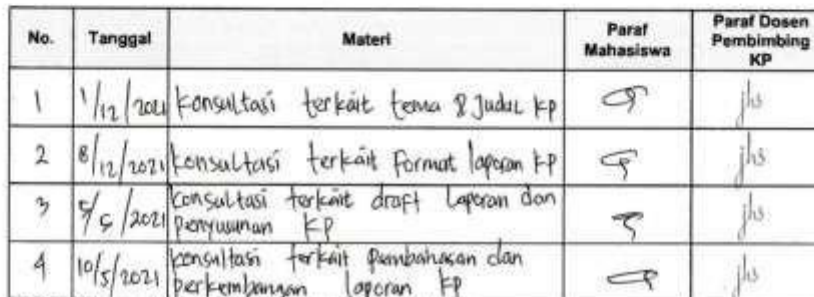 No. Tanggal Materi Paraf Mahasiswa Paraf Dosen Pembimbing KP
1 1/12/2021 Konsultasi terkait tema & Judul KP jhs
2 8/12/2021 Konsultasi terkait format laporan KP jhs
3 5/5/2021 Konsultasi terkait draft Laporan dan
Penyusunan KP jhs
4 10/5/2021 Konsultasi terkait pembahasan dan
perkembangan laporan KP jhs